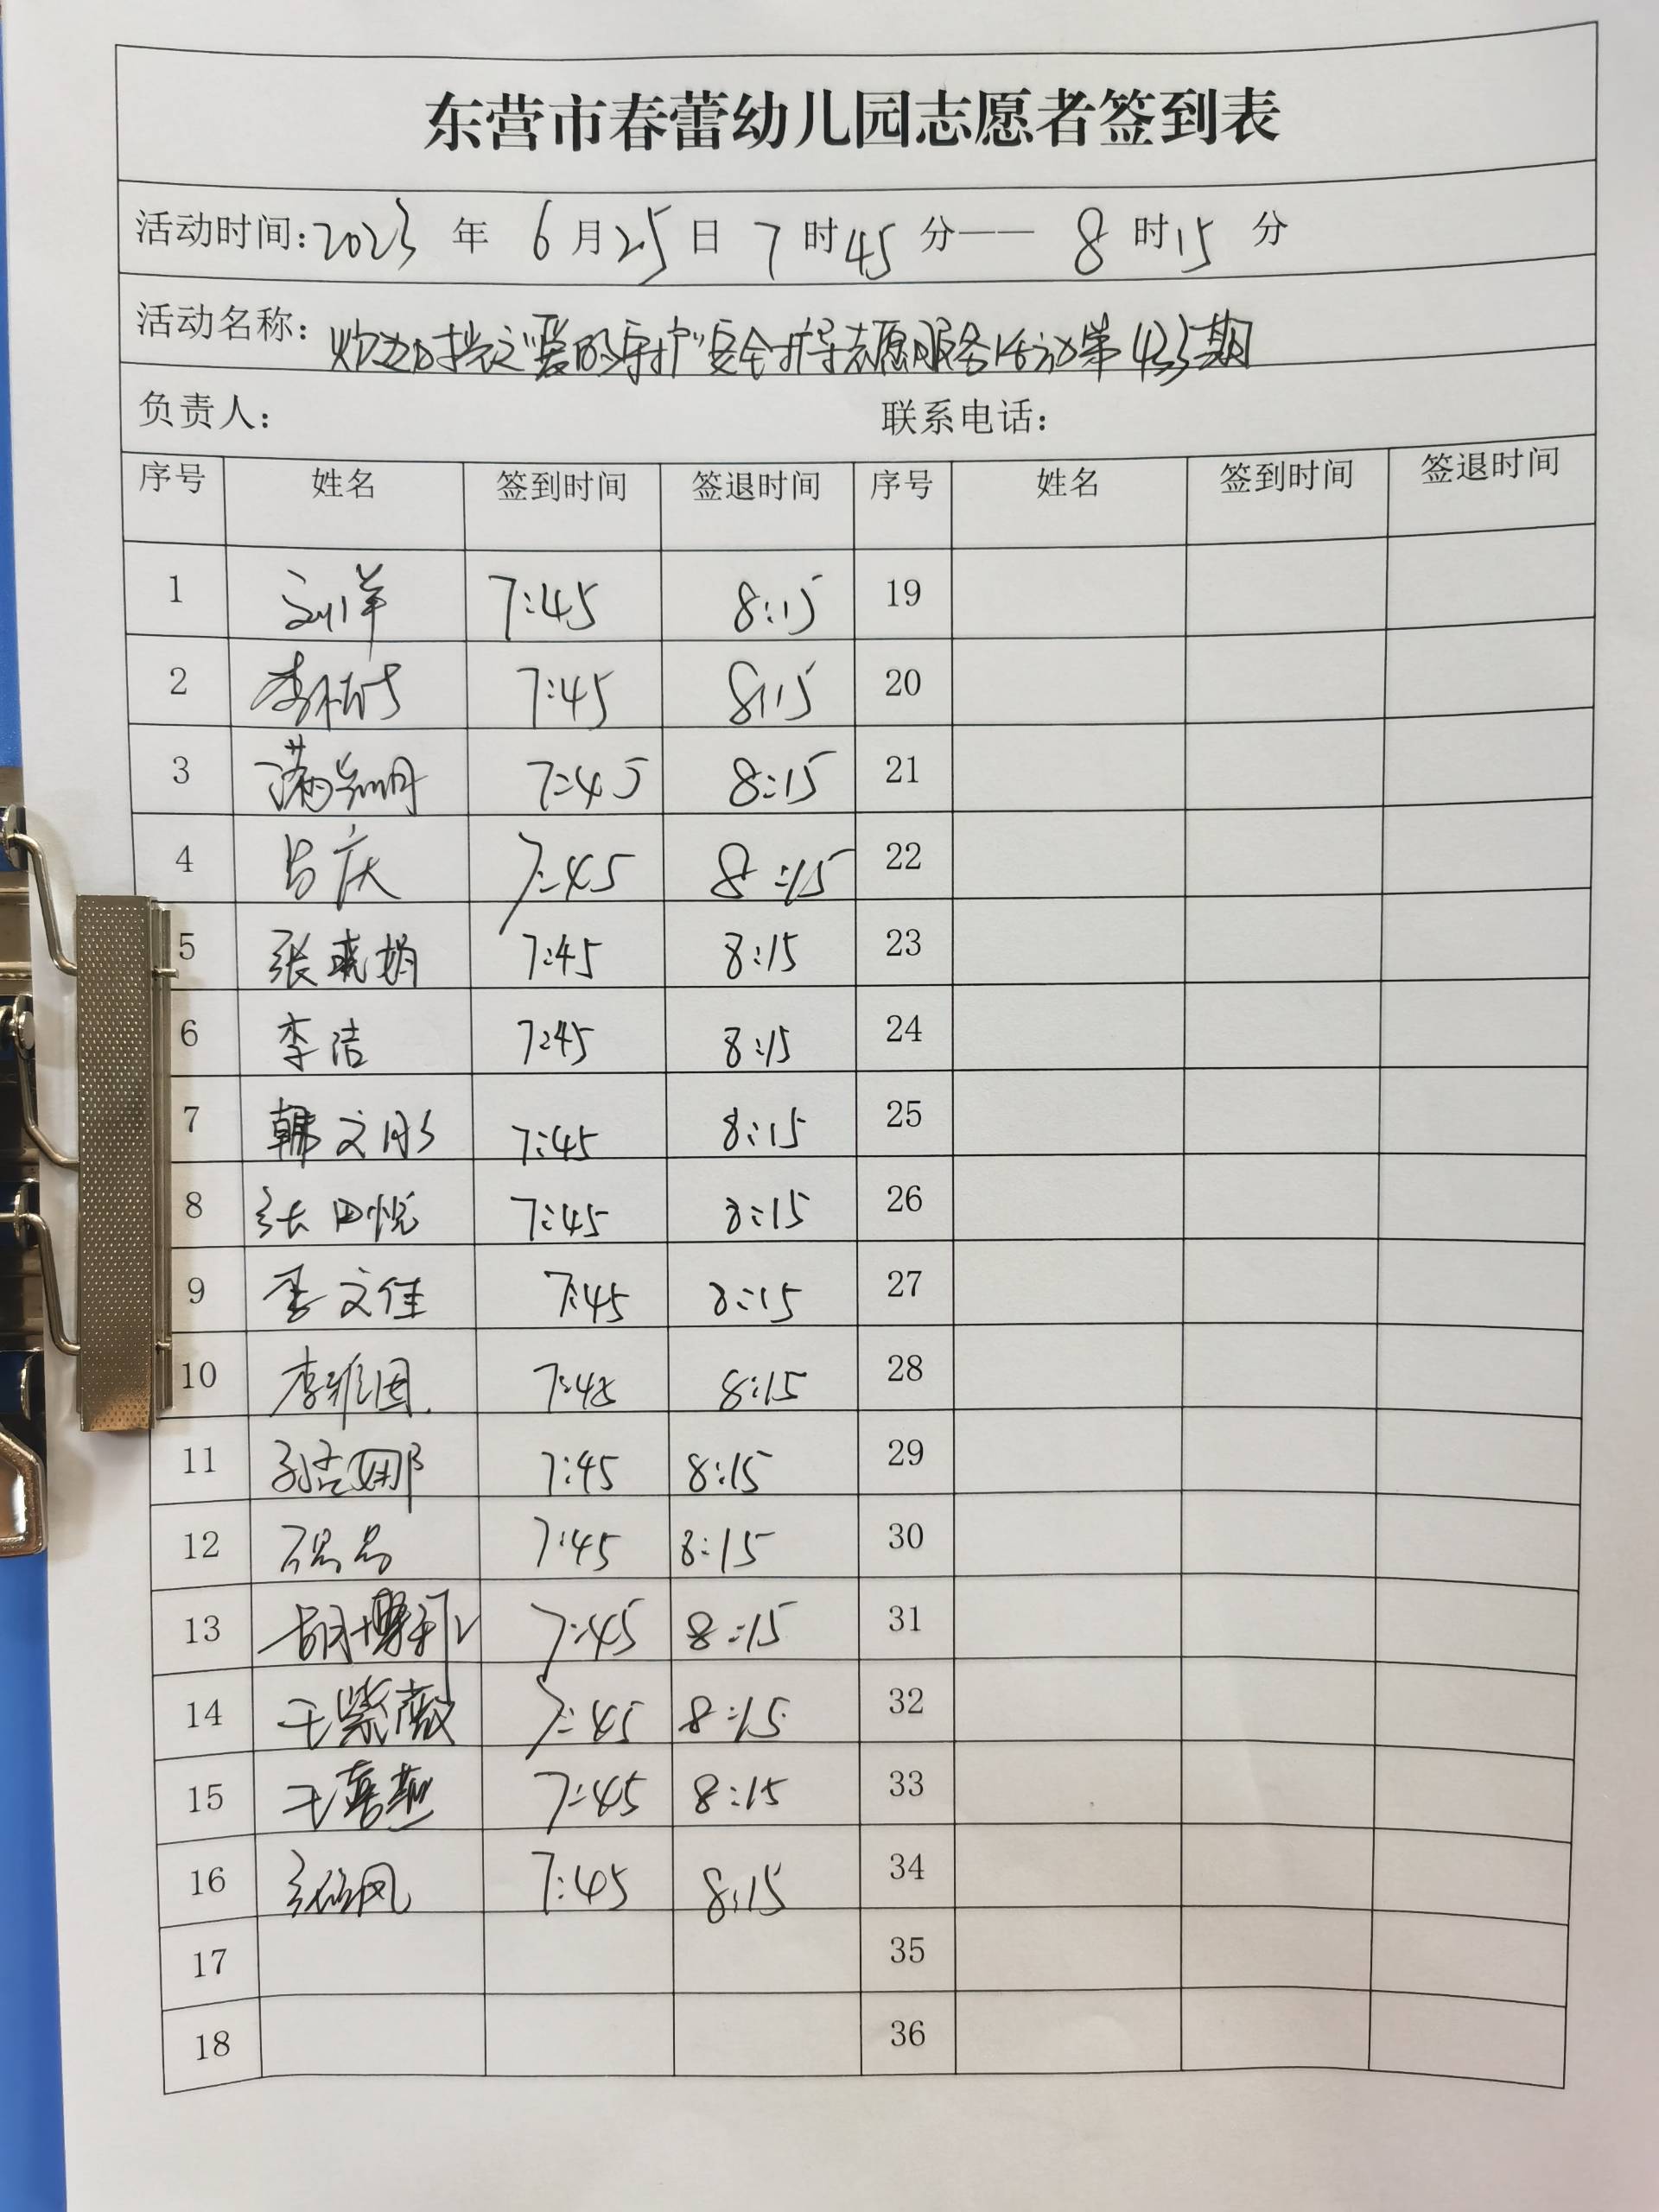 东营市春蕾幼儿园志愿者签到表
活动时间:2023 年 6 月 25 日 7 时 45 分—— 8 时 15 分
活动名称: 之"爱的守护"安全护导志愿服务活动第433期
负责人: 联系电话:
序号 姓名 签到时间 签退时间 序号 姓名 签到时间 签退时间
1 刘洋 7:45 8:15 19
2 7:45 8:15 20
3 7:45 8:15 21
4 吕庆 7:45 8:15 22
5 张晓娟 7:45 8:15 23
6 李洁 7:45 8:15 24
7 韩文彤 7:45 8:15 25
8 张田悦 7:45 8:15 26
9 李文佳 7:45 8:15 27
10 7:45 8:15 28
11 7:45 8:15 29
12 7:45 8:15 30
13 7:45 8:15 31
14 王紫薇 7:45 8:15 32
15 王喜燕 7:45 8:15 33
16 7:45 8:15 34
17 35
18 36